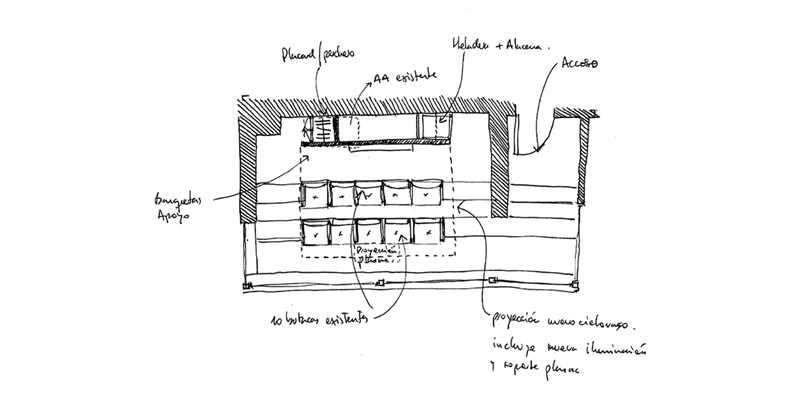 Placard/perchero
Heladera + Alacena.
AA existente
Acceso
banquetas
Apoyo
proyección
plasma
10 butacas existentes
proyección nuevo cielorraso.
incluye nueva iluminación
y soporte plasma